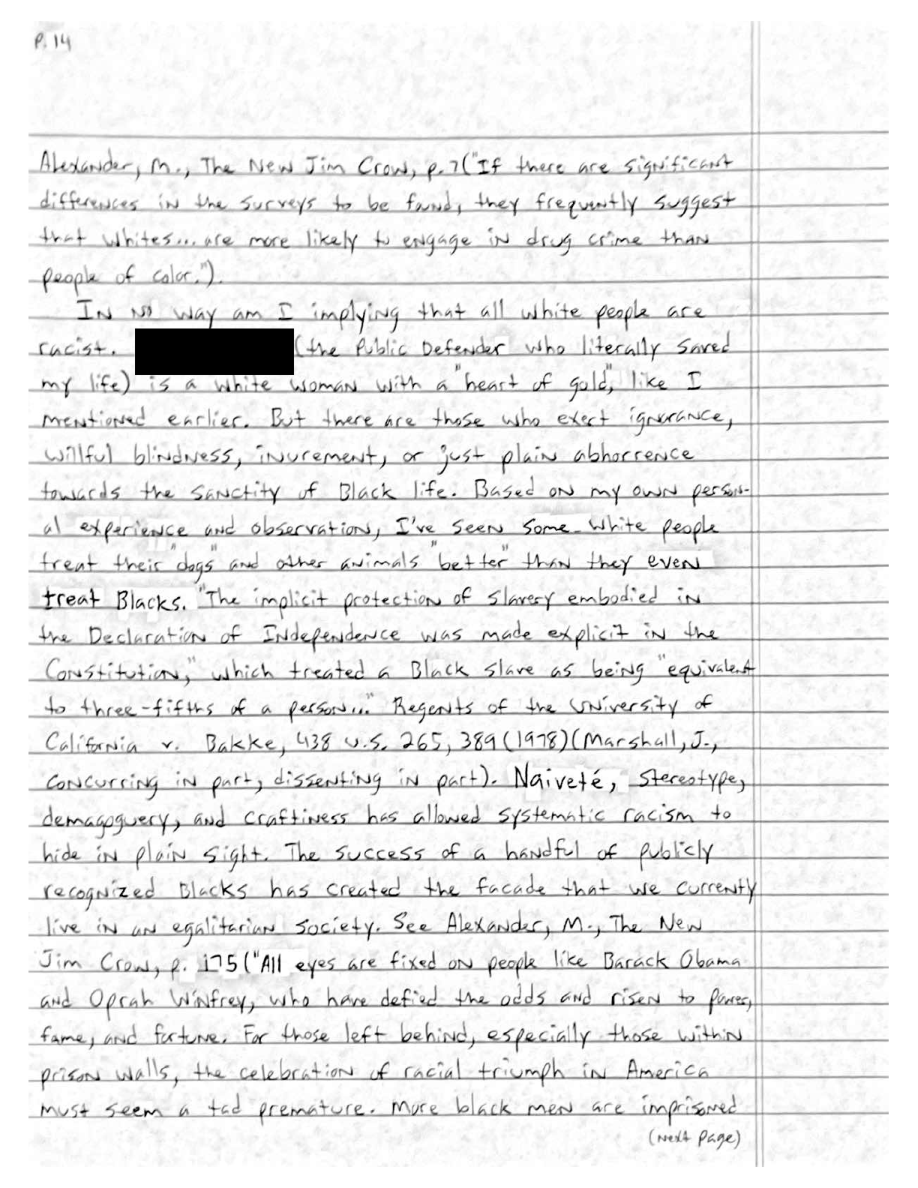 P. 14
Alexander, M., The New Jim Crow, p. 7 ("If there are significant
differences in the surveys to be found, they frequently suggest
that whites... are more likely to engage in drug crime than
people of color.").
In no way am I implying that all white people are
racist. (the Public Defender who literally saved
my life) is a white woman with a "heart of gold," like I
mentioned earlier. But there are those who exert ignorance,
willful blindness, inurement, or just plain abhorrence
towards the sanctity of Black life. Based on my own person-
al experience and observation, I've seen some white people
treat their "dogs" and other animals "better" than they even
treat Blacks. "The implicit protection of slavery embodied in
the Declaration of Independence was made explicit in the
Constitution," which treated a Black slave as being "equivalent
to three-fifths of a person..." Regents of the University of
California v. Bakke, 438 U.S. 265, 389 (1978) (Marshall, J.,
concurring in part, dissenting in part). Naiveté, stereotype,
demagoguery, and craftiness has allowed systematic racism to
hide in plain sight. The success of a handful of publicly
recognized Blacks has created the facade that we currently
live in an egalitarian society. See Alexander, M., The New
Jim Crow, p. 175 ("All eyes are fixed on people like Barack Obama
and Oprah Winfrey, who have defied the odds and risen to power,
fame, and fortune. For those left behind, especially those within
prison walls, the celebration of racial triumph in America
must seem a tad premature. More black men are imprisoned
(Next Page)